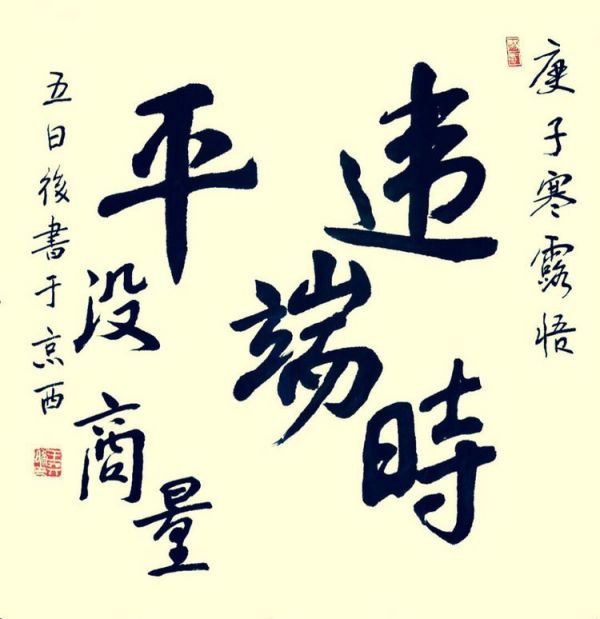 庚子寒露悟
建端時
平没商量
五日後書于京西